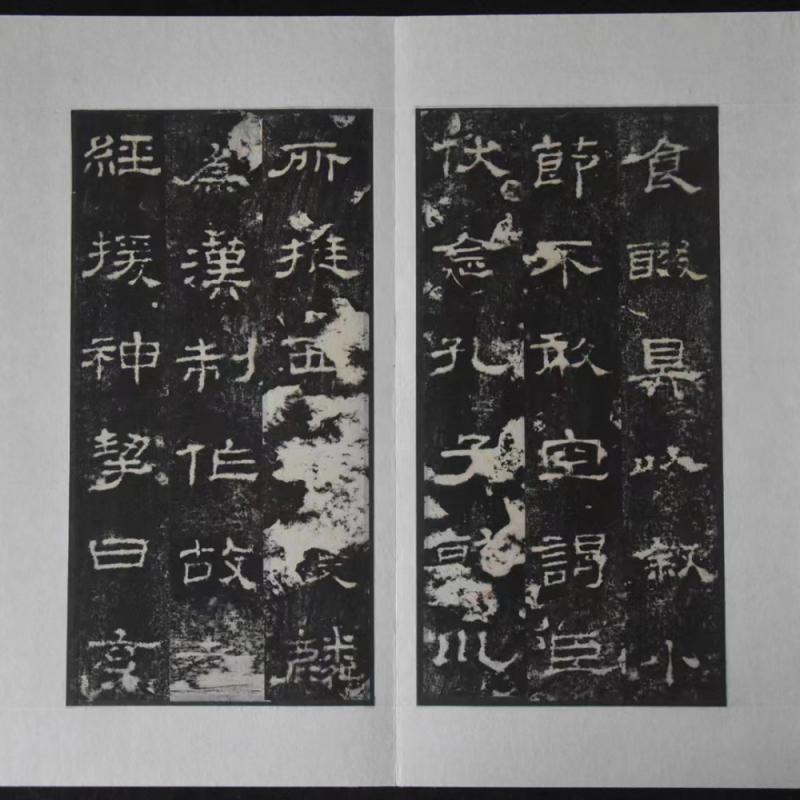 食醊具以叙小
節不敢空謁臣
伏念孔子乾川
所挺西麟
為漢制作故孝
經援神挈曰玄